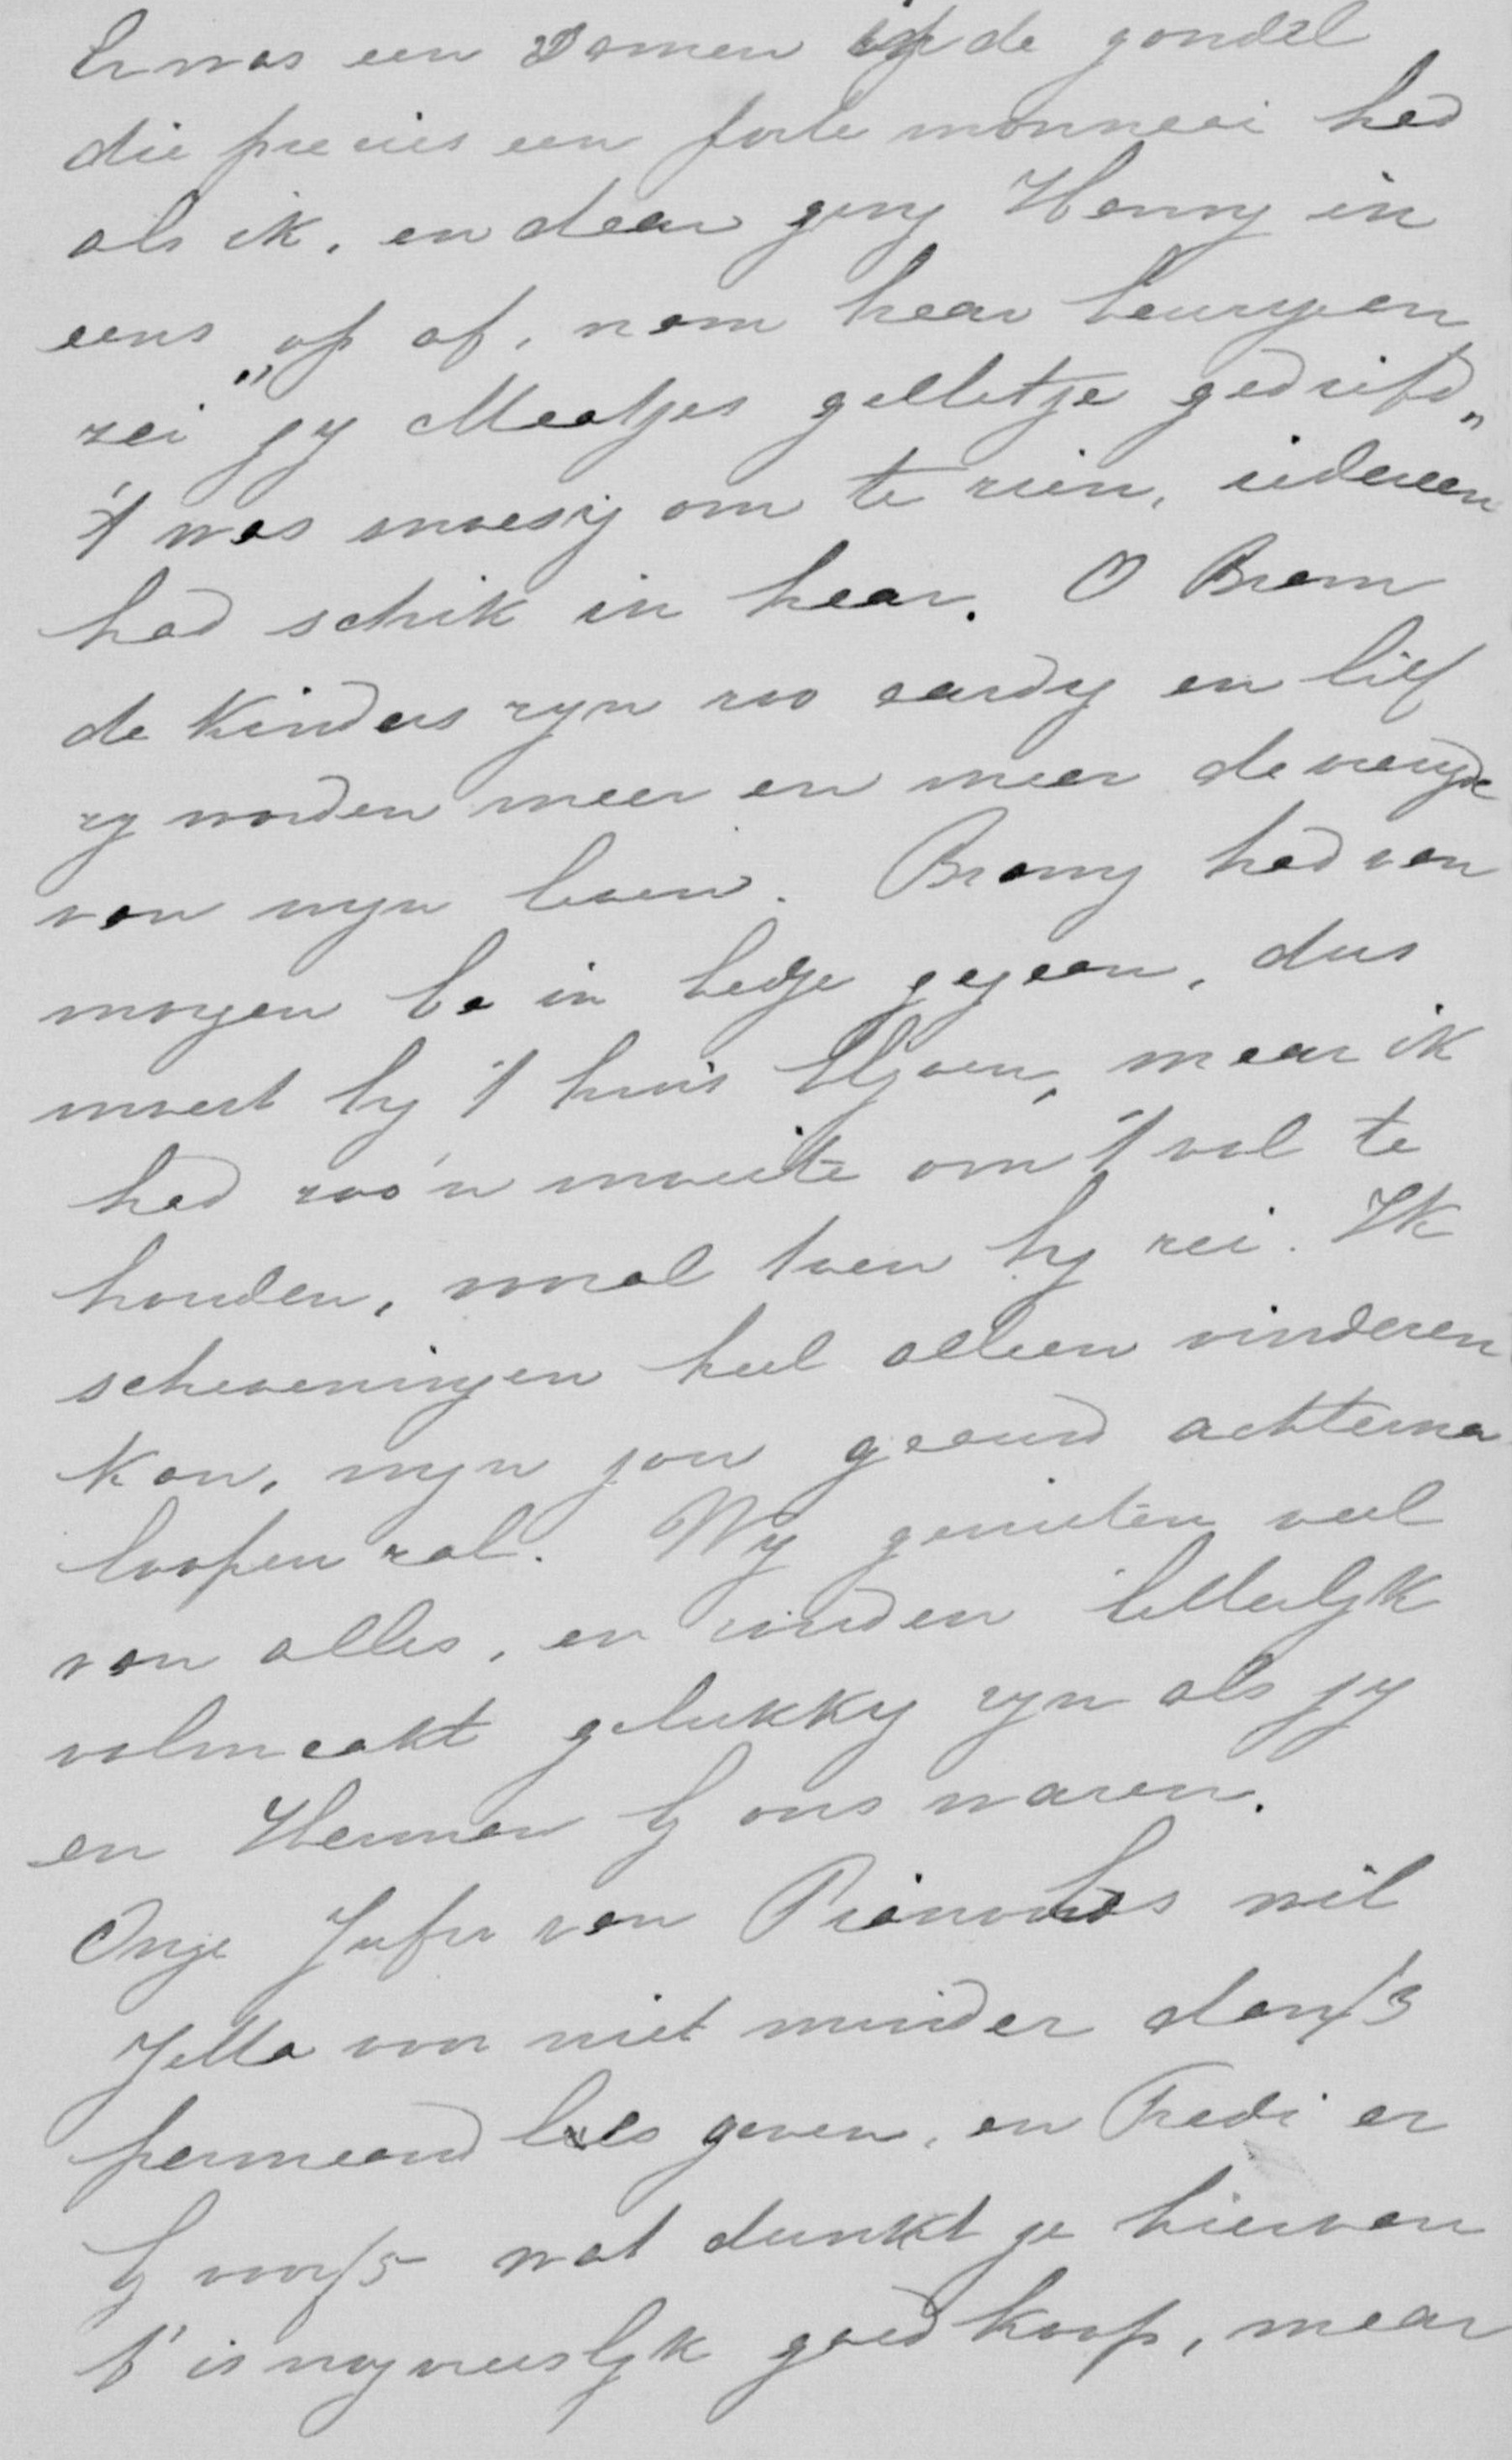 Er was een Damen op de gondel
die precies een porte monnaai had
als ik, en daar ging Henny in
eens op af, nam haar beursje en
zei „jij Maatjes gelletje gedrift„
't was snoezig om te zien, iedereen
had schik in haar. O Bram
de kinders zijn zoo aardig en lief
zij worden meer en meer de vreugde
van mijn leven. Bramy had van
morgen ba in bedje gegaan, dus
moest hij t huis blijven, maar ik
had zoo'n moeite om 't vol te
houden, vooral toen hij zei. Ik
scheveningen heel alleen vinderen
kan, mijn jou gauud achterna
loopen zal. Wij genieten veel
van alles, en zouden letterlijk
volmaakt gelukkig zijn als jij
en Herman bij ons waren.
Onze Jufer van Pianoles wil
Jetta voor niet minder dan f3
permaand les geven, en Fredi er
bij voor f5 wat dunkt je hiervan
t' is nog vreeslijk goedkoop, maar